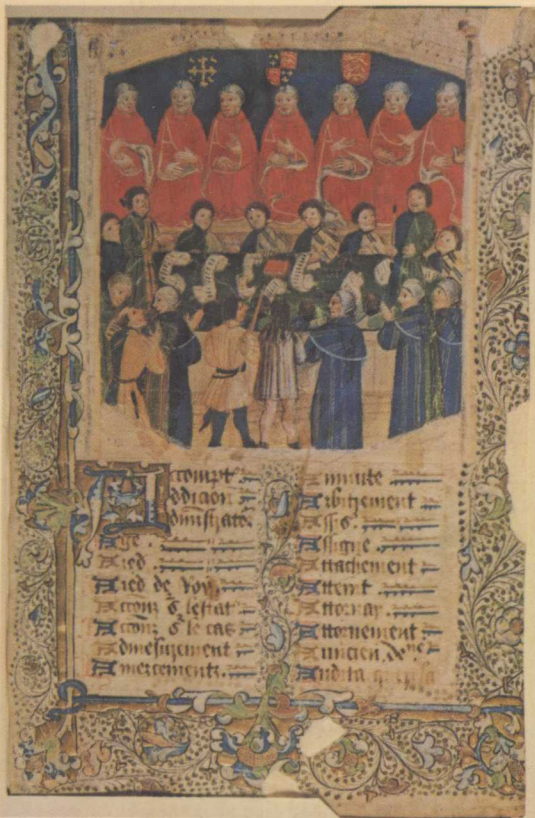 Accompt
Addicion
Administrato
Age
Aied
Aied de Roy
Accom̃ s̃ le stat
Accom̃ s̃ le cas
Admesurement
Amercement
Annuite
Arbitrement
Ass̃
Assigne
Attachement
Atteint
Attornay
Attornement
Auncien
Audita querela